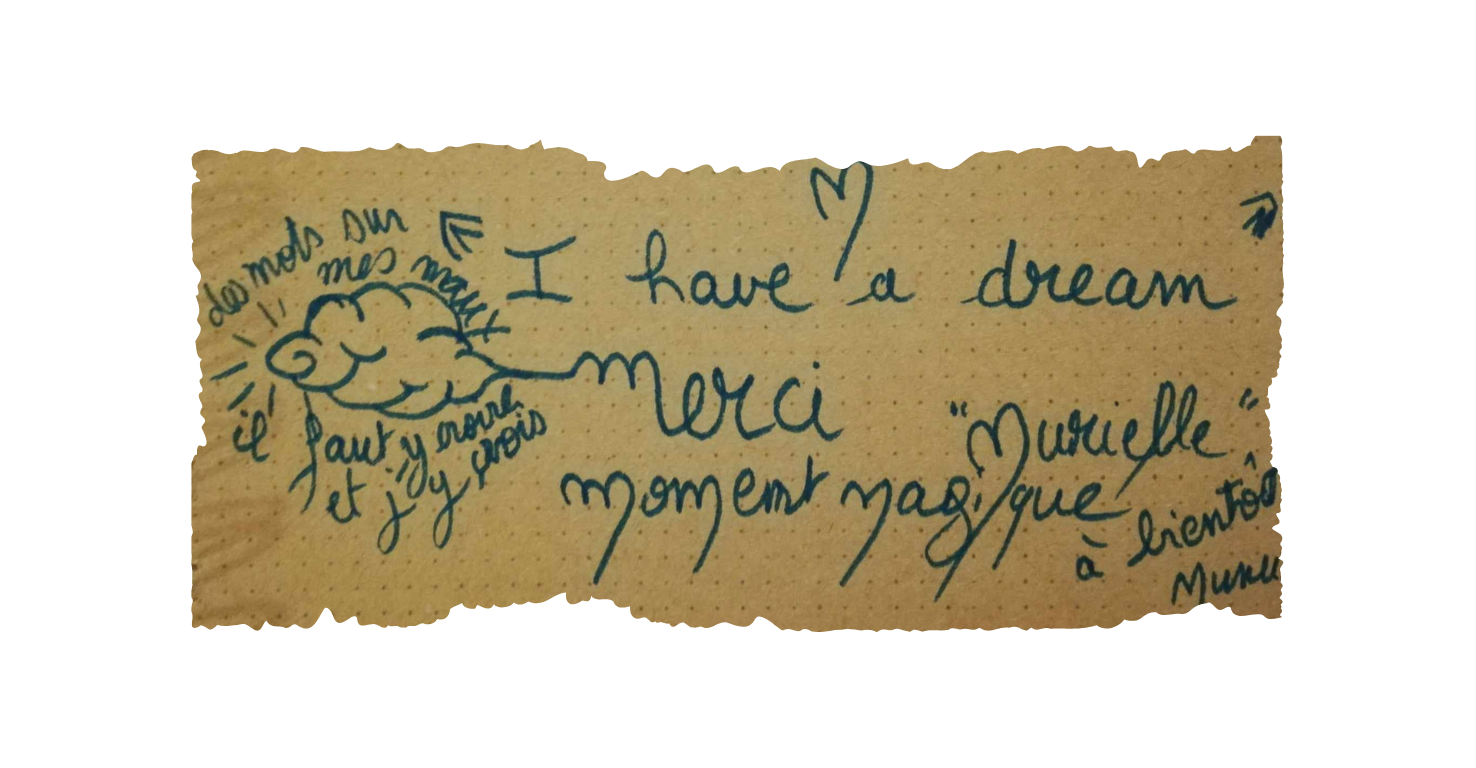 des mots sur
mes maux
« I have a dream »
Merci
il faut y croire
et j'y crois
"Murielle"
moment magique
à bientôt
Muru